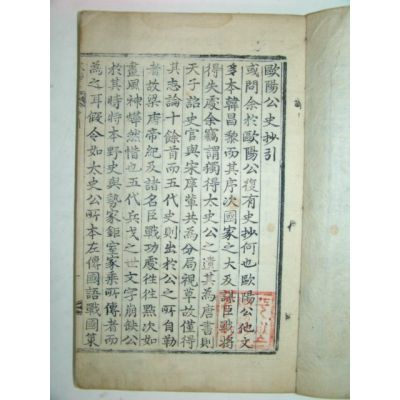 歐陽公史抄引
或問余於歐陽公復有史抄何也歐陽公他文
多本韓昌黎而其序次國家之大及謀臣戰將
得失處余竊謂獨得太史公之遺其為唐書則
天子詔史官與宋庠輩共為分局視草故僅得
其志論十餘首而五代史則出於公之所自勒
者故梁唐帝紀及諸名臣戰功處徃徃點次如
畫風神㷟然惜也五代兵戈之世文字崩缺公
於其時特本野史與勢家鉅室家乘所傳者而
為之耳假令如太史公所本左傳國語戰國策